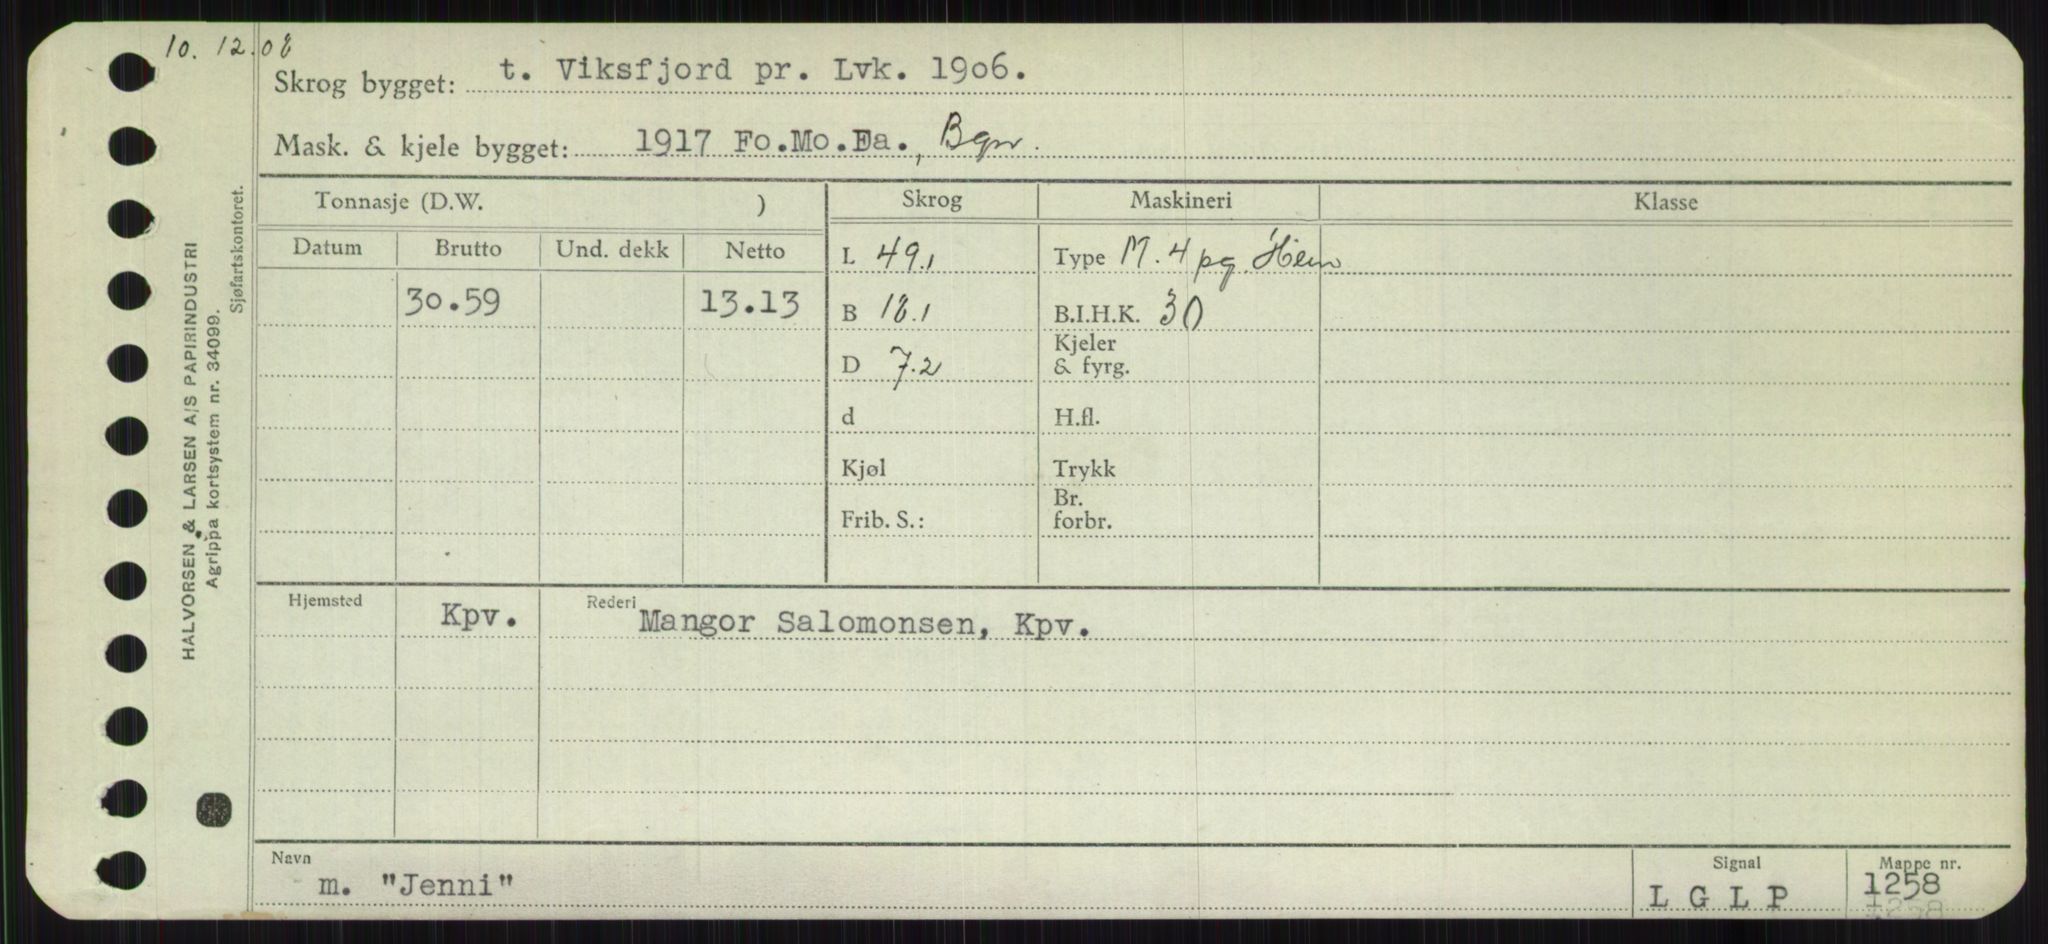 10. 12.08
Skrog bygget: t. Viksfjord pr. Lvk. 1906.
Mask. & kjele bygget: 1917 Fo.Mo.Fa., Bgn.
HALVORSEN & LARSEN A/S PAPIRINDUSTRI
Agrippa kortsystem nr. 34099.
Sjøfartskontoret.
Tonnasje (D.W. ) Skrog Maskineri Klasse
Datum Brutto Und. dekk Netto
L 49.1 Type M. 4 pg.
30.59 13.13
B 18.1 B.I.H.K. 30
D 7.2 Kjeler & fyrg.
d H.fl.
Kjøl Trykk
Frib. S.: Br. forbr.
Hjemsted Kpv. Rederi Mangor Salomonsen, Kpv.
Navn Signal Mappe nr.
m. "Jenni" L G L P 1258
1258